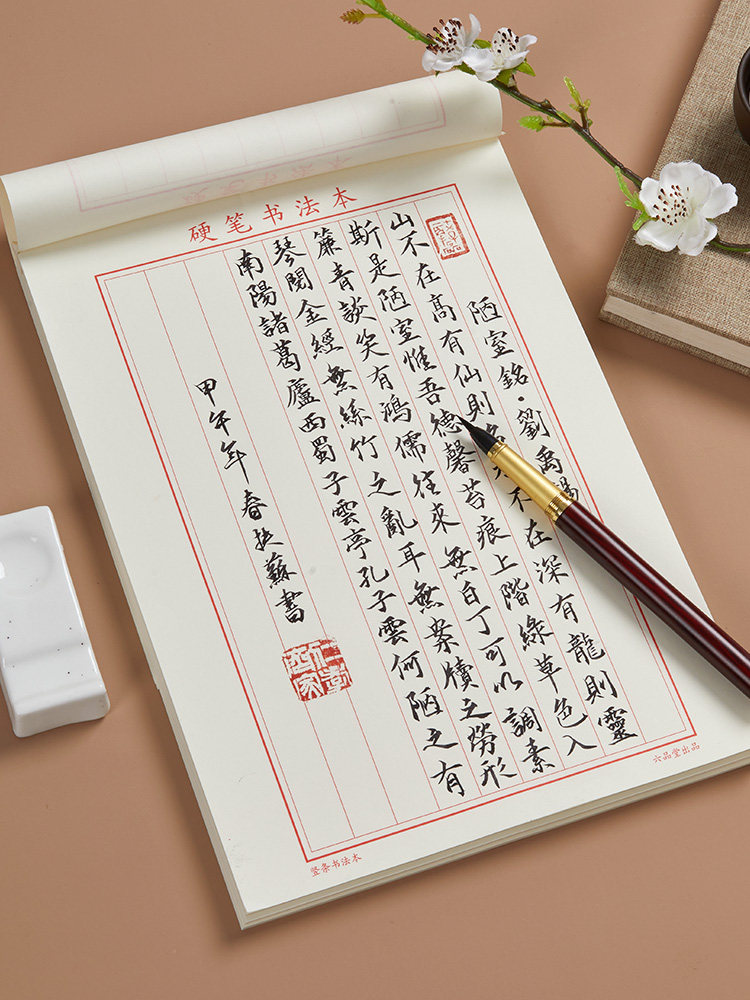 硬笔书法本
陋室銘·劉禹
山不在高有仙則不在深有龍則靈
斯是陋室惟吾德馨苔痕上階綠草色入
簾青談笑有鴻儒往來無白丁可以調素
琴閱金經無絲竹之亂耳無案牘之勞形
南陽諸葛廬西蜀子雲亭孔子雲何陋之有
甲午年春扶蘇書
竖条书法本
六品堂出品